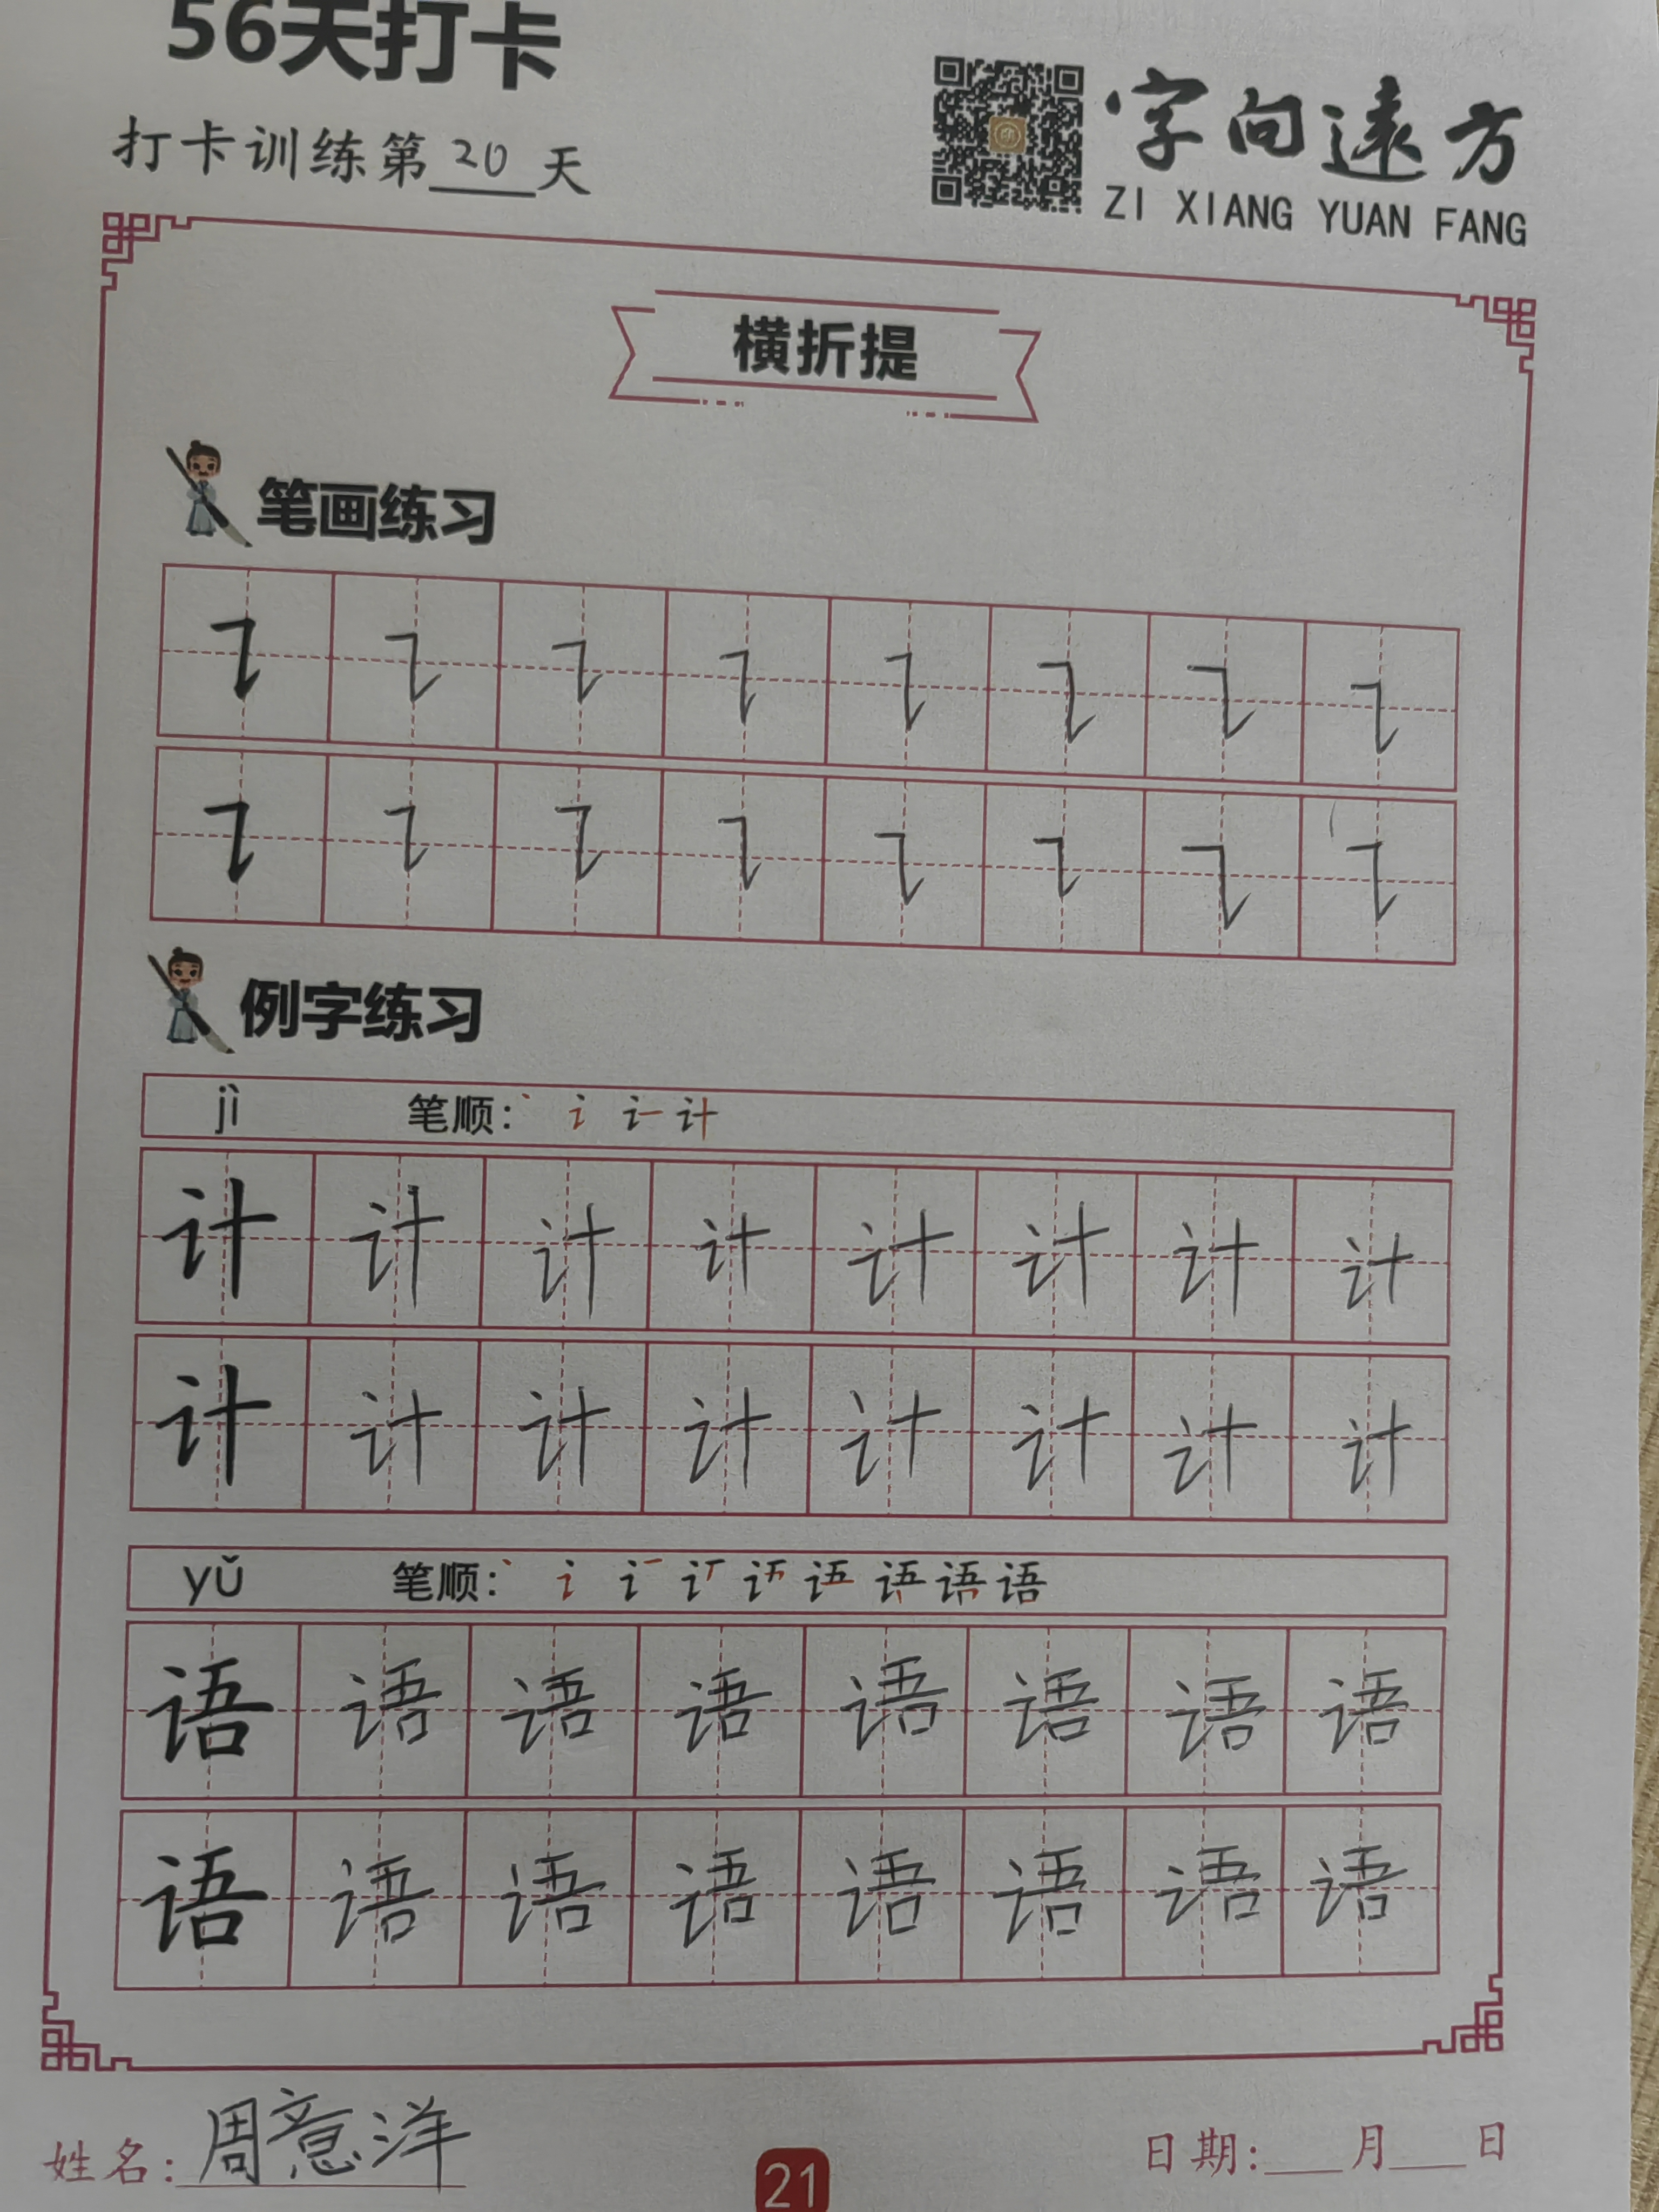 56天打卡
打卡训练第20天
字向遠方
ZI XIANG YUAN FANG
横折提
笔画练习
例字练习
jì 笔顺：丶 讠 计
计 计 计 计 计 计 计 计
计 计 计 计 计 计 计 计
yǔ 笔顺：丶 讠 语
语 语 语 语 语 语 语 语
语 语 语 语 语 语 语 语
姓名：周意洋
日期：___月___日
21